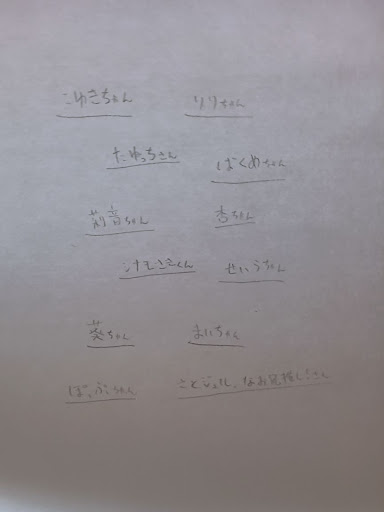 こゆきちゃん りりちゃん
たゆっちさん
ばくめちゃん
莉音ちゃん 杏ちゃん
けむ くん せいうちゃん
葵ちゃん まいちゃん
ぼっぷちゃん さとジェル、なお兄推しさん